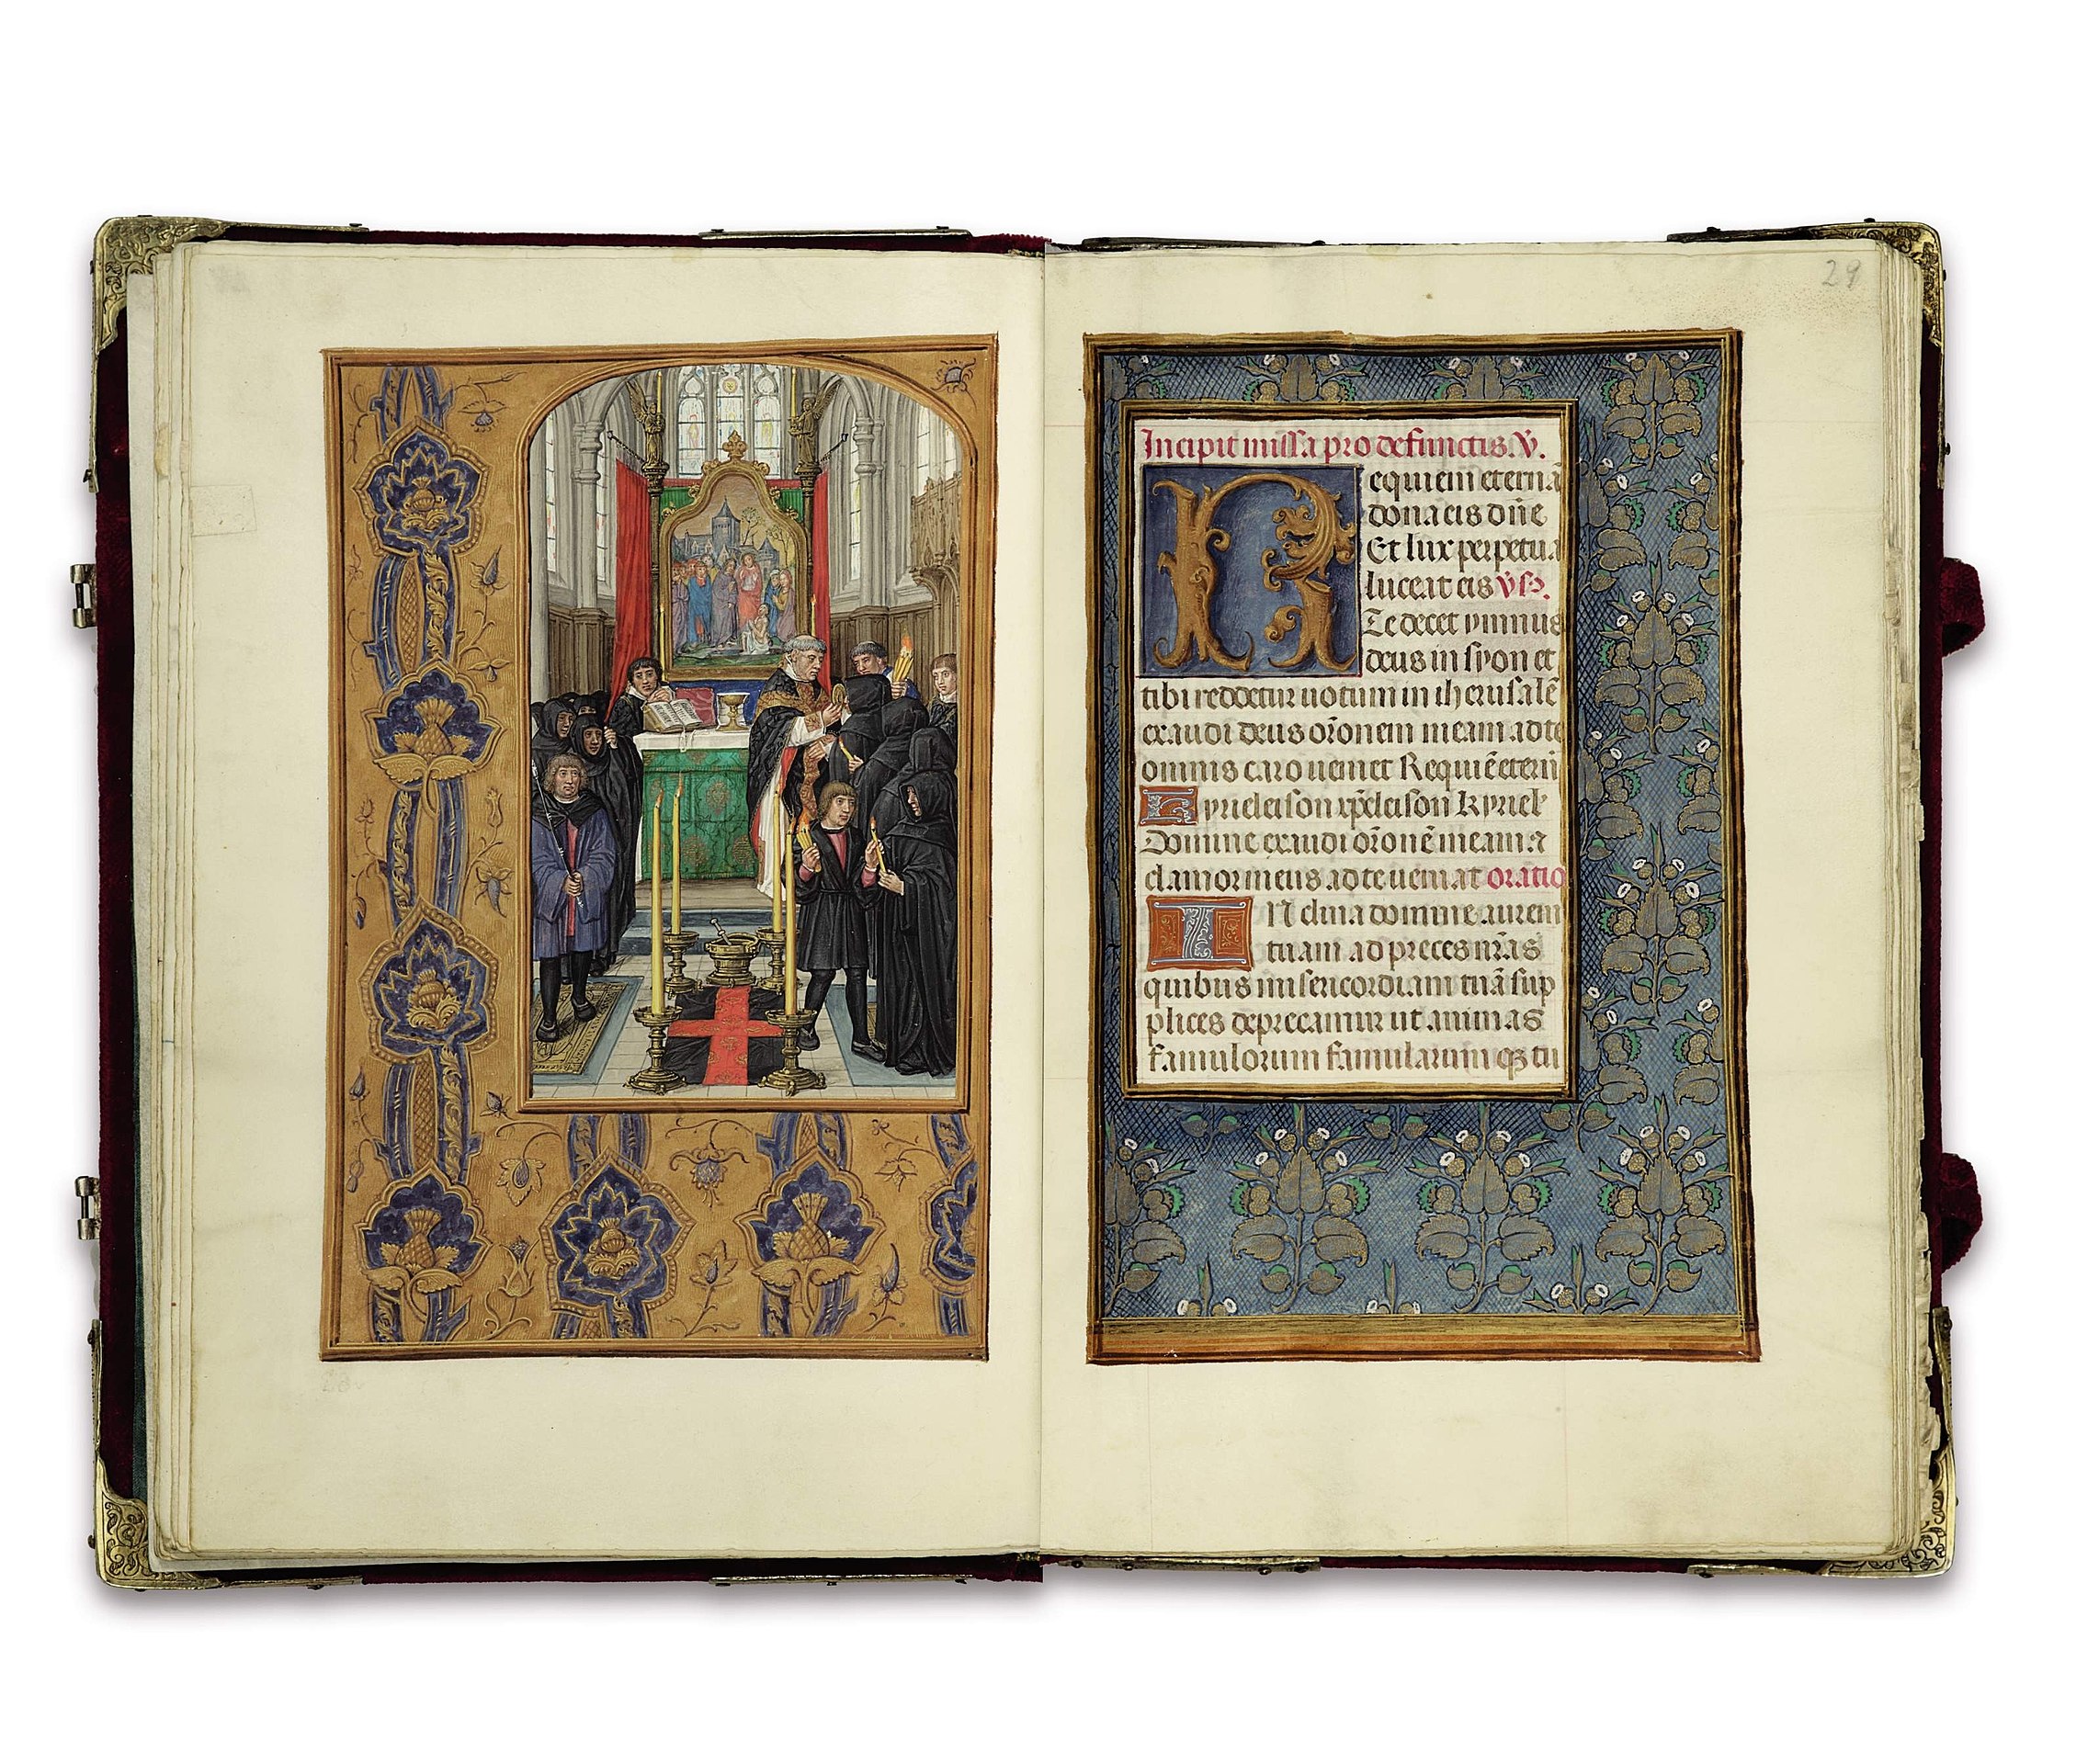 29
Incipit missa pro defunctis. V̾.
Requiem eternā
dona eis dn̄e
Et lux perpetua
luceat eis v̾s̾.
Te decet ymnus
deus in syon et
tibi reddetur uotum in iherusalē
exaudi deus or̄onem meam ad te
omnis caro ueniet Requiē etern̄
Kyrieleison xp̄eleison kyriel̾
Domine exaudi or̄onē meam ⁊
clamor meus ad te ueniat oratio
INclina domine aurem
tuam ad preces nr̄as
quibus misericordiam tuā sup
plices deprecamur ut animas
famulorum famularum qꝫ tu